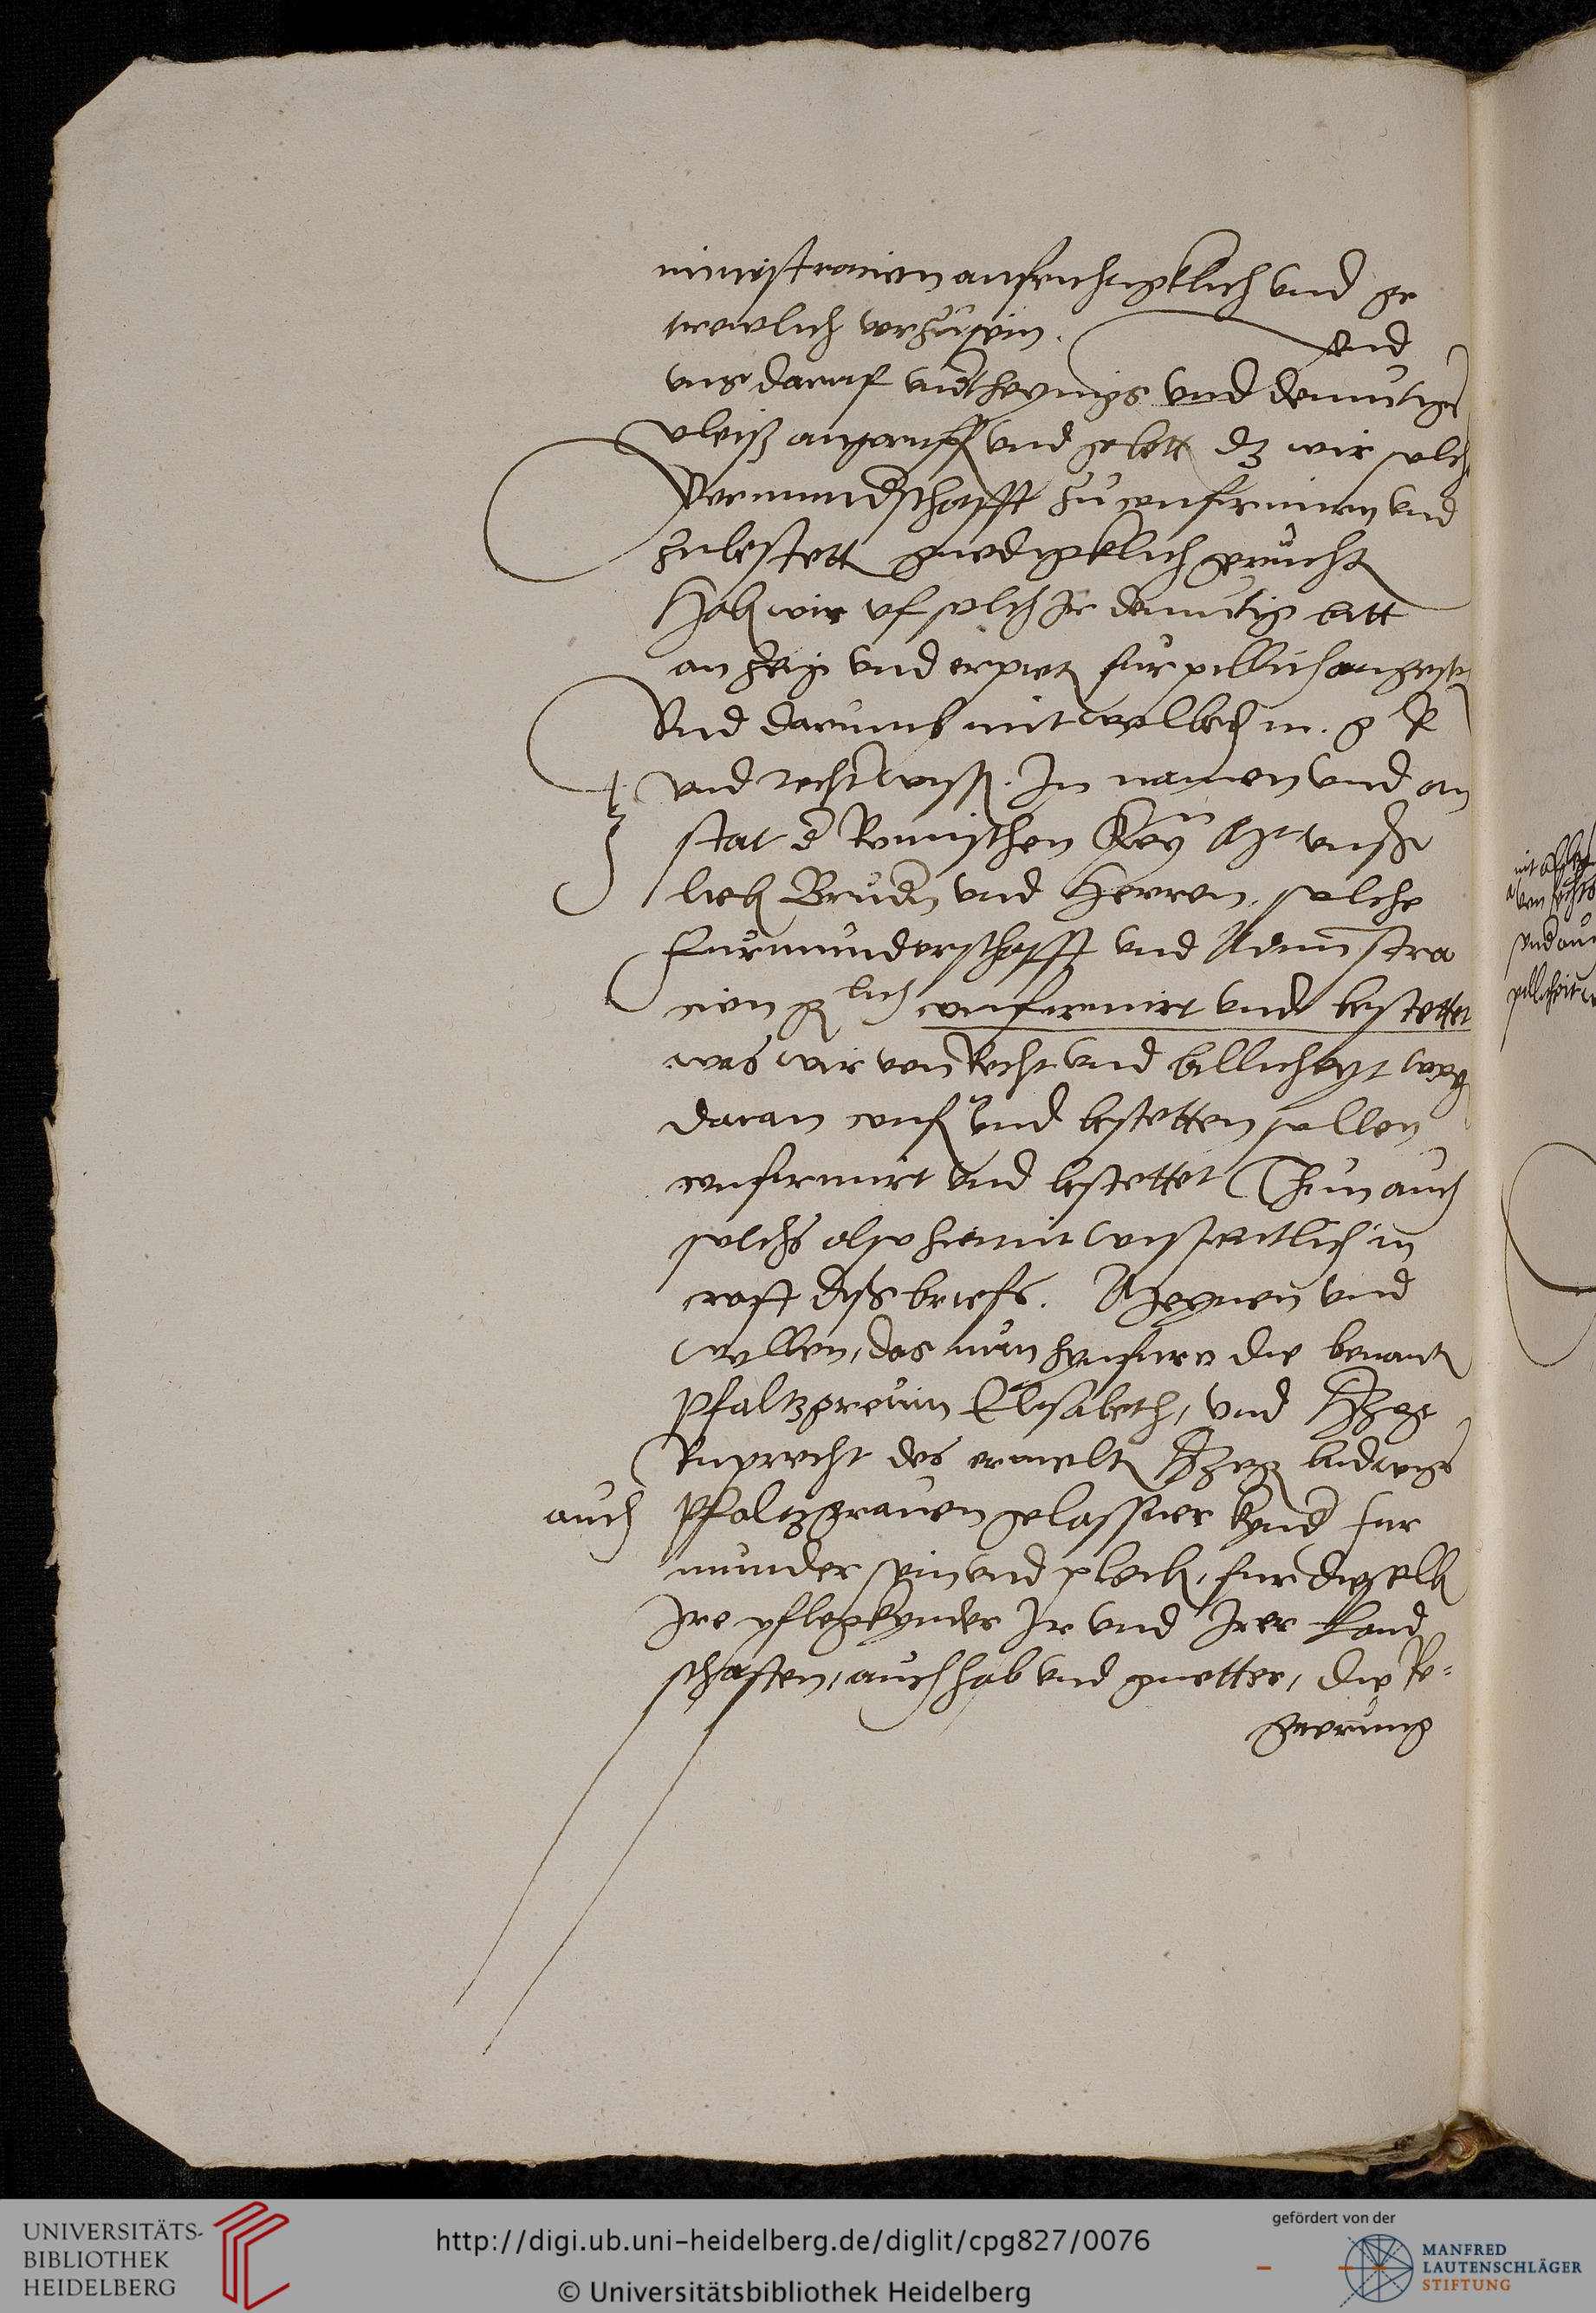 ministracien aufrichtigklich vnd ge
trewlich vorzusein. vnd
vns daruf vndtheynigs vnd demutigs
vleiß angeruff vnd gebett dz wir solch
Vormundschafft zu confirmirn vnd
zubestett gnedigklich geruchtn
Hab wir vf solch Ir demutig bitt
an zeig vnd erpietn fur pillich angesehn
Vnd darumb mit wolbedachtem m. g R
vnd recht wissn. In namen vnd an
stat d Romischen Key Mt vnßs
lieb Brudn vnd Herren, solche
furmunderschafft vnd Adminstra
cien glich confirmirt vnd bestettet
was wir von Recht vnd billicheyt weg
daran conf vnd bestetten sollen
confirmirt vnd bestettet Thun auch
solchs also hiemit wissentlich in
craft diß briefs. Meynen vnd
wollen, das nun hynfure die benant
Pfaltzgreuin Elisabeth, vnd Hzog
Ruprecht des ermelt Hzog ludwigs
auch Pfaltzgrauen gelassner kynd fur
munder sein vnd pleib, fur dieselb
Ire pflegkynder Ir vnd Irer Land
schaften, auch hab vnd guetter, die Re-
gierung
mit
von
vnd auch
pillicheit
UNIVERSITÄTS-
BIBLIOTHEK
HEIDELBERG
http://digi.ub.uni-heidelberg.de/diglit/cpg827/0076
© Universitätsbibliothek Heidelberg
gefördert von der
MANFRED
LAUTENSCHLÄGER
STIFTUNG